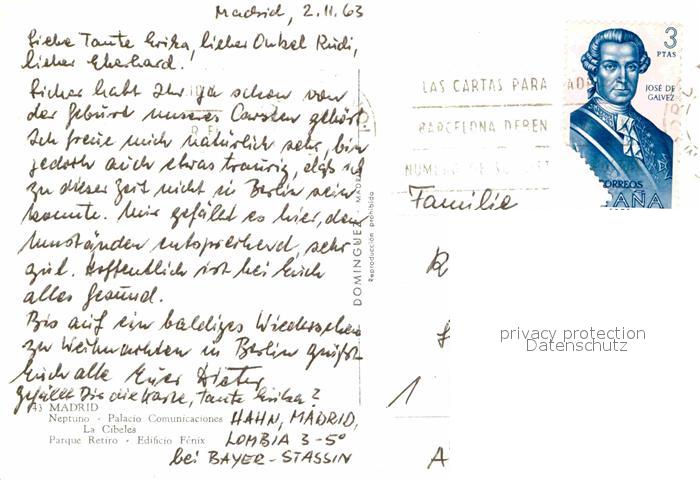 Madrid, 2.11.63
Liebe Tante Erika, lieber Onkel Rudi,
lieber Eberhard!
Sicher habt Ihr ja schon von
der Geburt unseres Carsten gehört.
Ich freue mich natürlich sehr, bin
jedoch auch etwas traurig, daß ich
zu dieser Zeit nicht in Berlin sein
konnte. Mir gefällt es hier, den
Umständen entsprechend, sehr
gut. Hoffentlich ist bei Euch
alles gesund.
Bis auf ein baldiges Wiedersehen
zu Weihnachten in Berlin grüßt
Euch alle Euer Dieter
Gefällt Dir die Karte, Tante Erika?
43 MADRID
Neptuno - Palacio Comunicaciones
La Cibeles
Parque Retiro - Edificio Fénix
HAHN, MADRID,
LOMBIA 3-5º
bei BAYER-STASSIN
DOMINGUEZ - MADRID
Reproducción prohibida
LAS CARTAS PARA
BARCELONA DEBEN
3
PTAS
JOSÉ DE
GALVEZ
CORREOS
ESPAÑA
Familie
1
A
privacy protection
Datenschutz